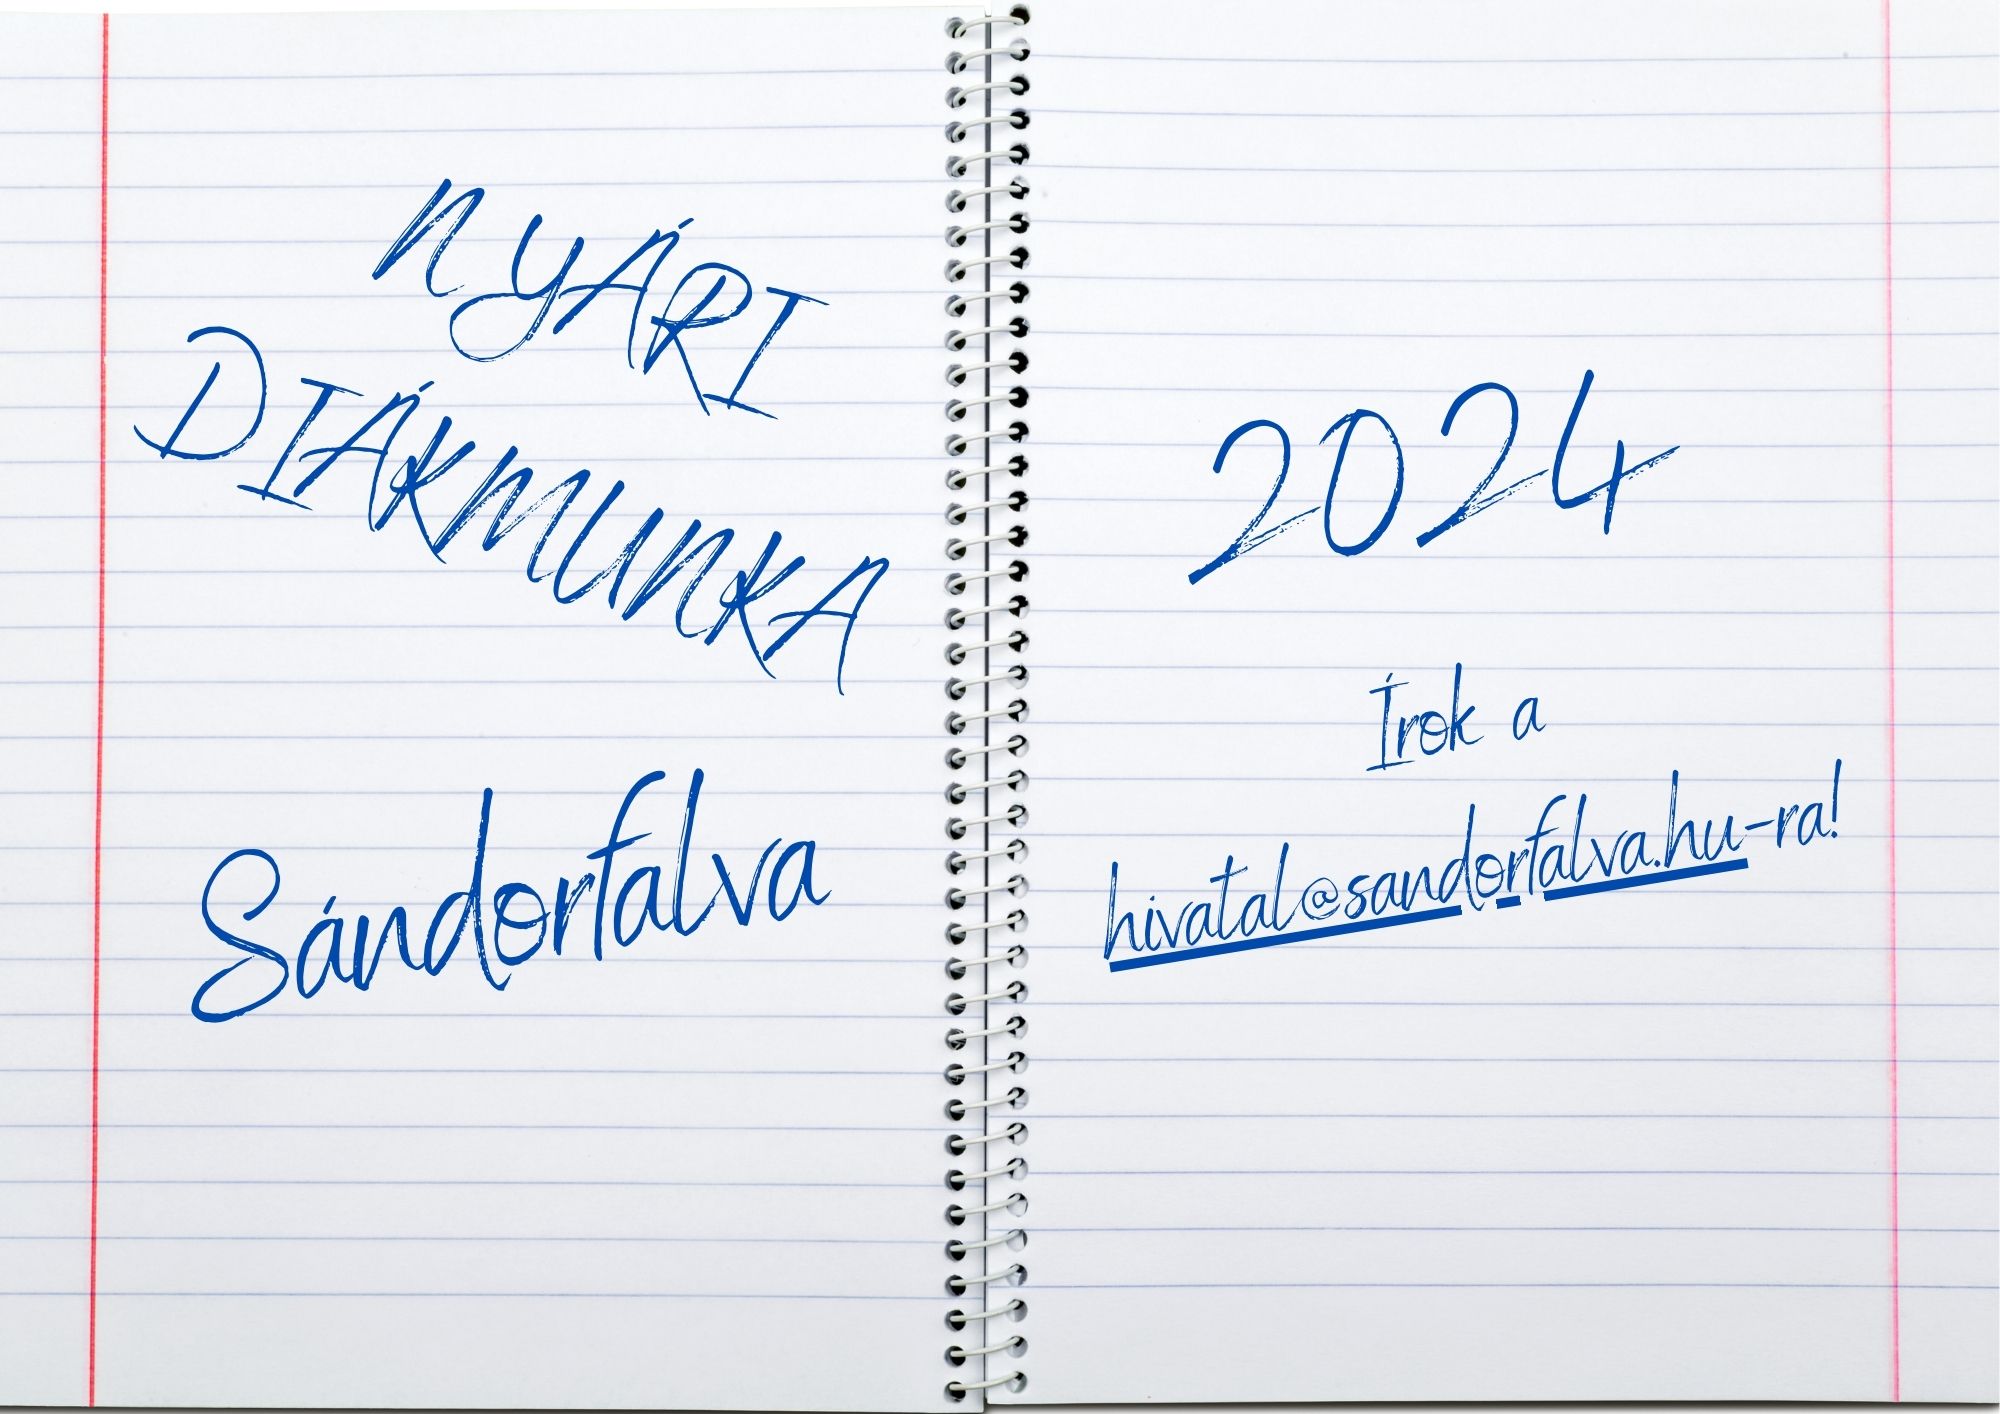 NYÁRI
DIÁKMUNKA
Sándorfalva
2024
Írok a
hivatal@sandorfalva.hu-ra!